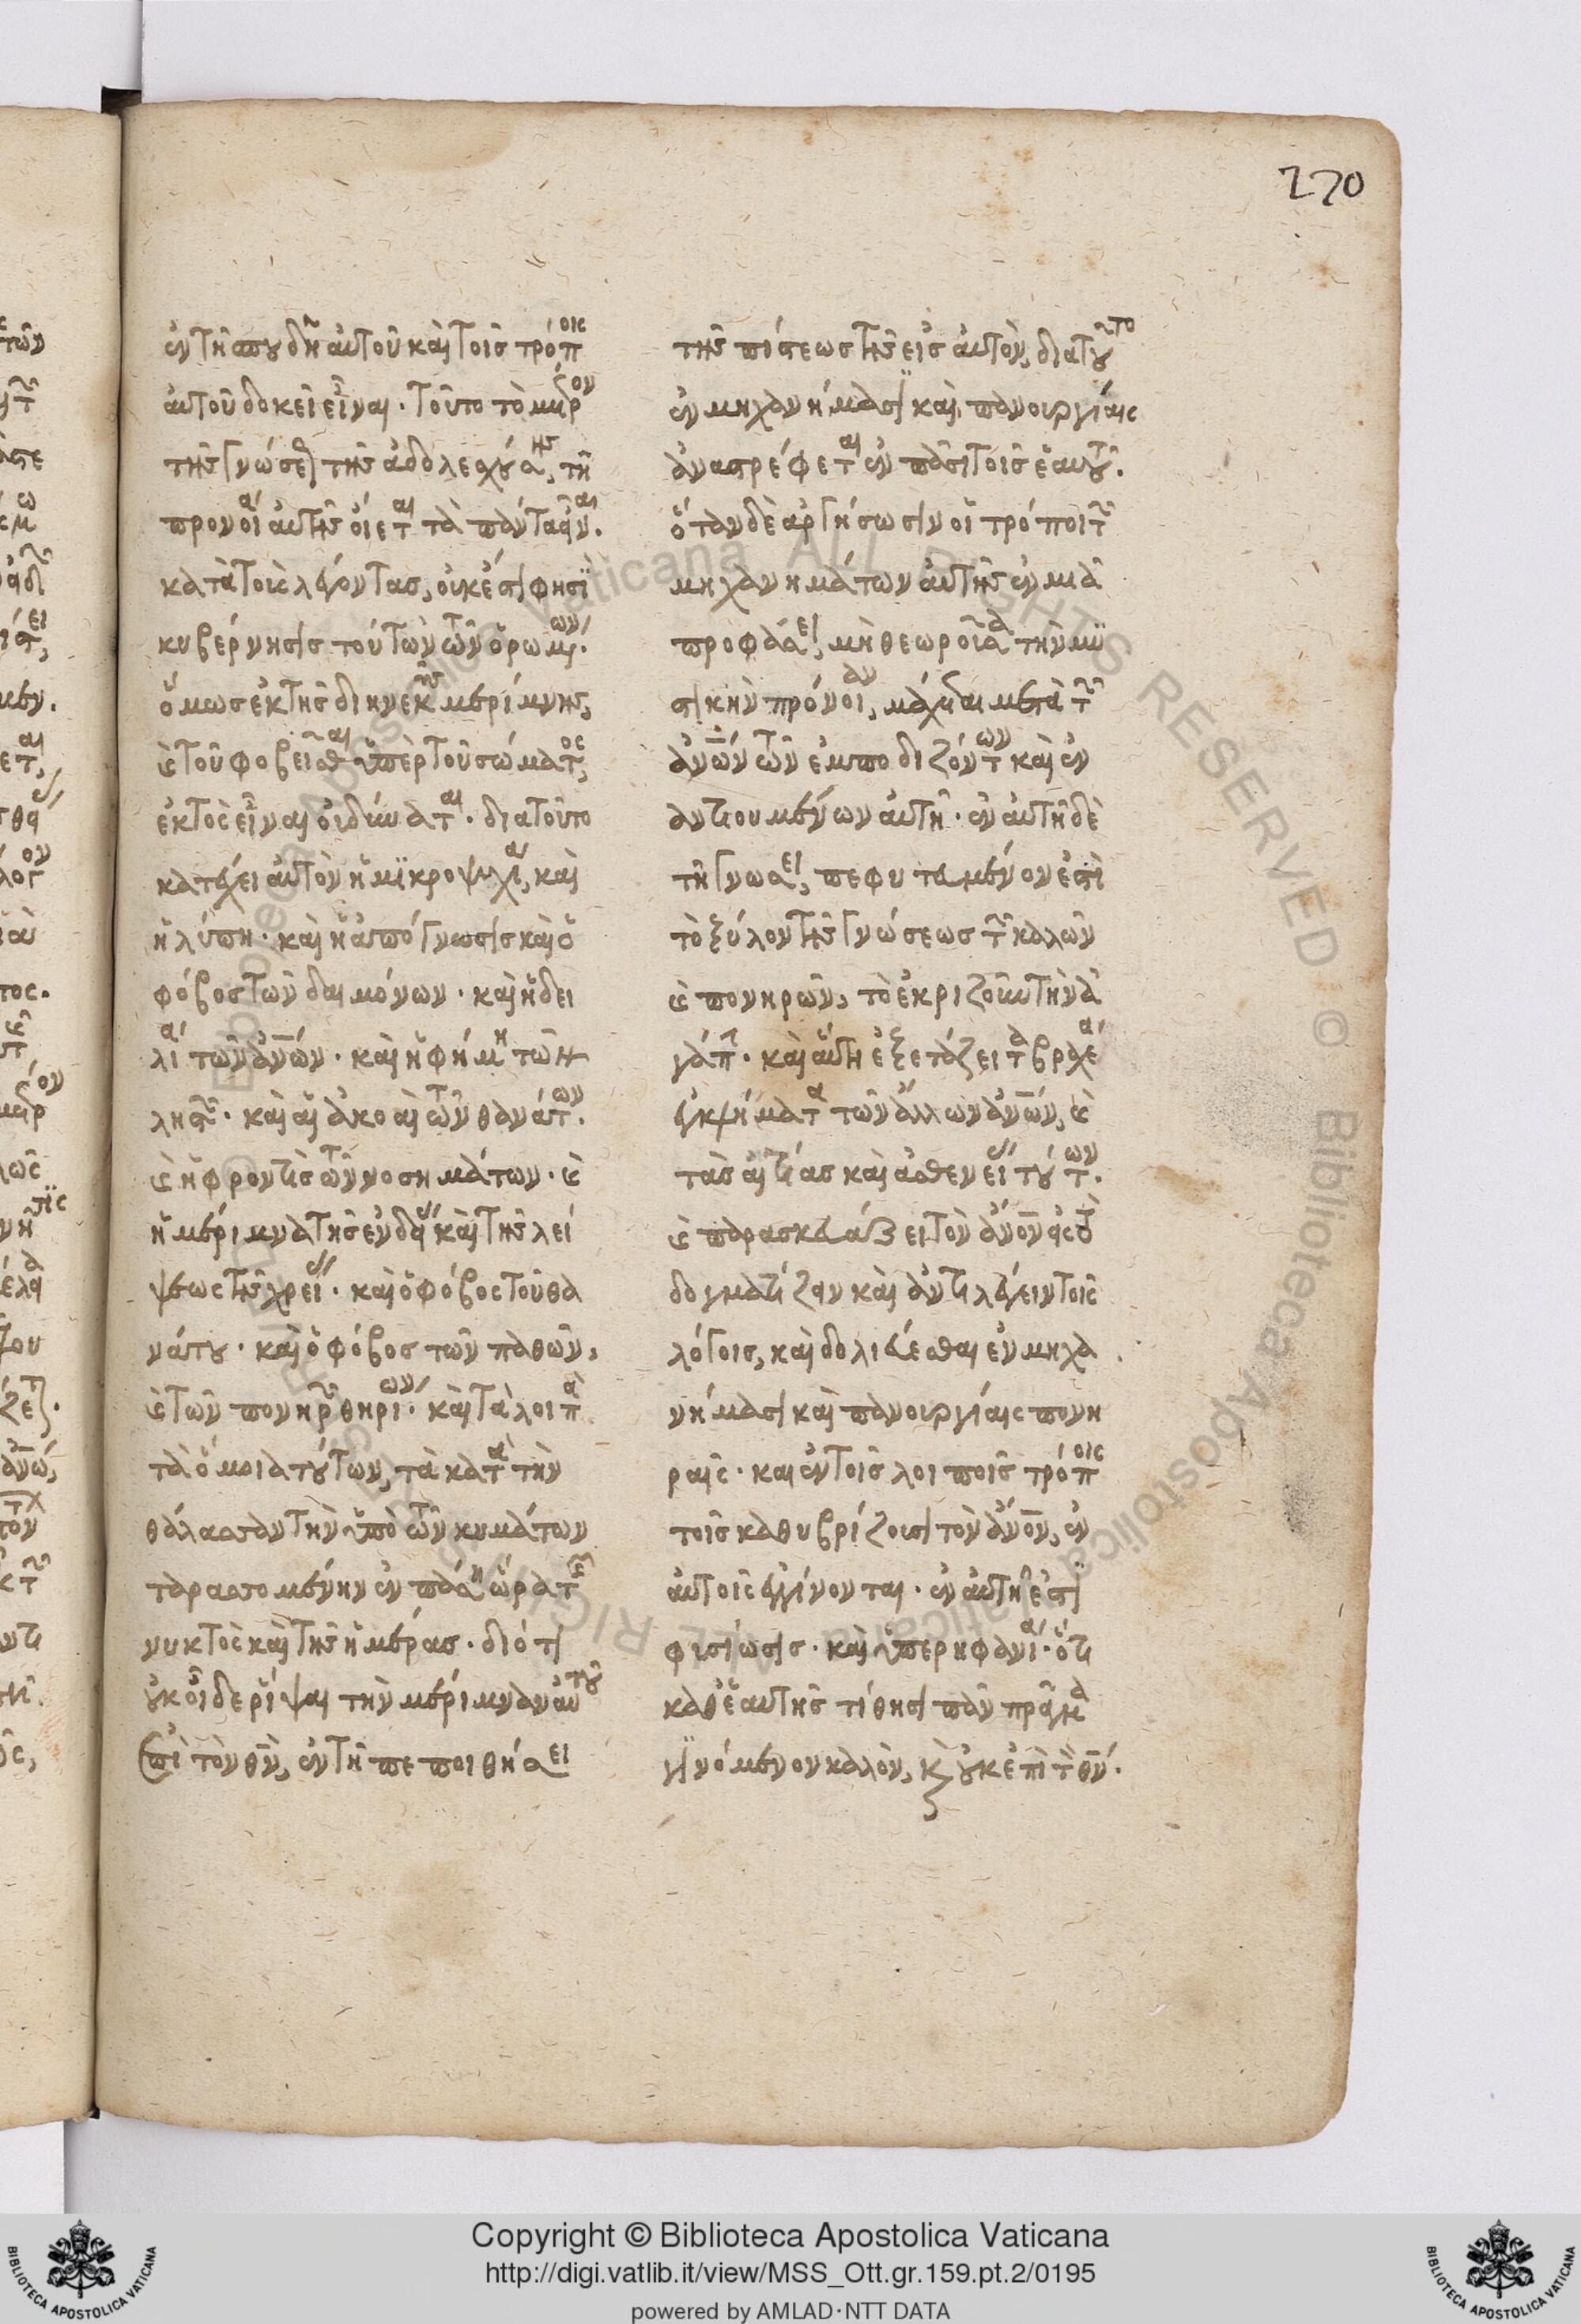 270
ἐν τῇ σπουδῇ αὐτοῦ καὶ τοῖς τρόποις
αὐτοῦ δοκεῖ εἶναι. τοῦτο τὸ μέρον
τῆς γνώσεως τῆς ἀδολεσχούσης, τῇ
προνοίᾳ αὐτῆς οἴεται τὰ πάντα εἶναι.
κατὰ τοὺς λέγοντας, οὐκ ἔστι φησὶ
κυβέρνησις τούτων τῶν ὁρωμένων.
ὅμως ἐκ τῆς διηνεκοῦς μερίμνης,
καὶ τοῦ φοβεῖσθαι ὑπὲρ τοῦ σώματος,
ἐκτὸς εἶναι οὐ δύναται. διὰ τοῦτο
κατέχει αὐτὸν ἡ μικροψυχία, καὶ
ἡ λύπη. καὶ ἡ ἀπόγνωσις καὶ ὁ
φόβος τῶν δαιμόνων. καὶ ἡ δει
λία τῶν ἀνων. καὶ ἡ φήμη τῶν
ληστῶν. καὶ αἱ ἀκοαὶ τῶν θανάτων.
καὶ ἡ φροντὶς τῶν νοσημάτων. καὶ
ἡ μέριμνα τῆς ἐνδείας καὶ τῆς λεί
ψεως τῆς χρείας. καὶ ὁ φόβος τοῦ θα
νάτου. καὶ ὁ φόβος τῶν παθῶν,
καὶ τῶν πονηρῶν θηρίων. καὶ τὰ λοιπὰ
τὰ ὅμοια τούτων, τὰ κατὰ τὴν
θάλασσαν τὴν ὑπὸ τῶν κυμάτων
ταρασσομένην ἐν πάσῃ ὥρᾳ τῆς
νυκτὸς καὶ τῆς ἡμέρας. διότι
οὐκ οἶδε ῥίψαι τὴν μέριμναν αὐτοῦ
ἐπὶ τὸν θν, ἐν τῇ πεποιθήσει
τῆς πίστεως τῆς εἰς αὐτόν, διὰ τοῦτο
ἐν μηχανήμασι καὶ πανουργίαις
ἀναστρέφεται ἐν πᾶσι τοῖς ἑαυτοῦ.
ὅταν δὲ ἀργήσωσιν οἱ τρόποι τῶν
μηχανημάτων αὐτῆς ἐν μιᾷ
προφάσει, μὴ θεωροῦσα τὴν μυ
στικὴν πρόνοιαν, μάχεται μετὰ τῶν
ἀνων τῶν ἐμποδιζόντων καὶ ἐν
αντιουμένων αὐτῇ. ἐν αὐτῇ δὲ
τῇ γνώσει, πεφυτευμένον ἐστὶ
τὸ ξύλον τῆς γνώσεως τῶν καλῶν
καὶ πονηρῶν, τὸ ἐκριζοῦν τὴν ἀ
γάπην. καὶ αὕτη ἐξετάζει τὰ βραχέα
ἐγκλήματα τῶν ἄλλων ἀνων, καὶ
τὰς αἰτίας καὶ ἀσθενείας τούτων.
καὶ παρασκευάζει τὸν ἀνον εἰς τὸ
δογματίζειν καὶ ἀντιλέγειν τοῖς
λόγοις, καὶ δολιεύεσθαι ἐν μηχα
νήμασι καὶ πανουργίαις πονη
ραῖς. καὶ ἐν τοῖς λοιποῖς τρόποις
τοῖς καθυβρίζουσι τὸν ἀνον, ἐν
αὐτοῖς γίνονται. ἐν αὐτῇ ἐστὶ
φυσίωσις. καὶ ὑπερηφανία. ὅτι
καθ' ἑαυτῆς τίθησι πᾶν πρᾶγμα
γινόμενον καλόν, καὶ οὐκ ἐπὶ τὸν θν.
Copyright © Biblioteca Apostolica Vaticana
http://digi.vatlib.it/view/MSS_Ott.gr.159.pt.2/0195
powered by AMLAD·NTT DATA